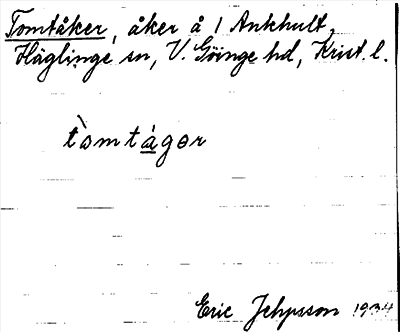 Tomtåker, åker å 1 Ankhult,
Häglinge sn, V. Göinge hd, Krist. l.
tòmtågər
Eric Jepsson 1934